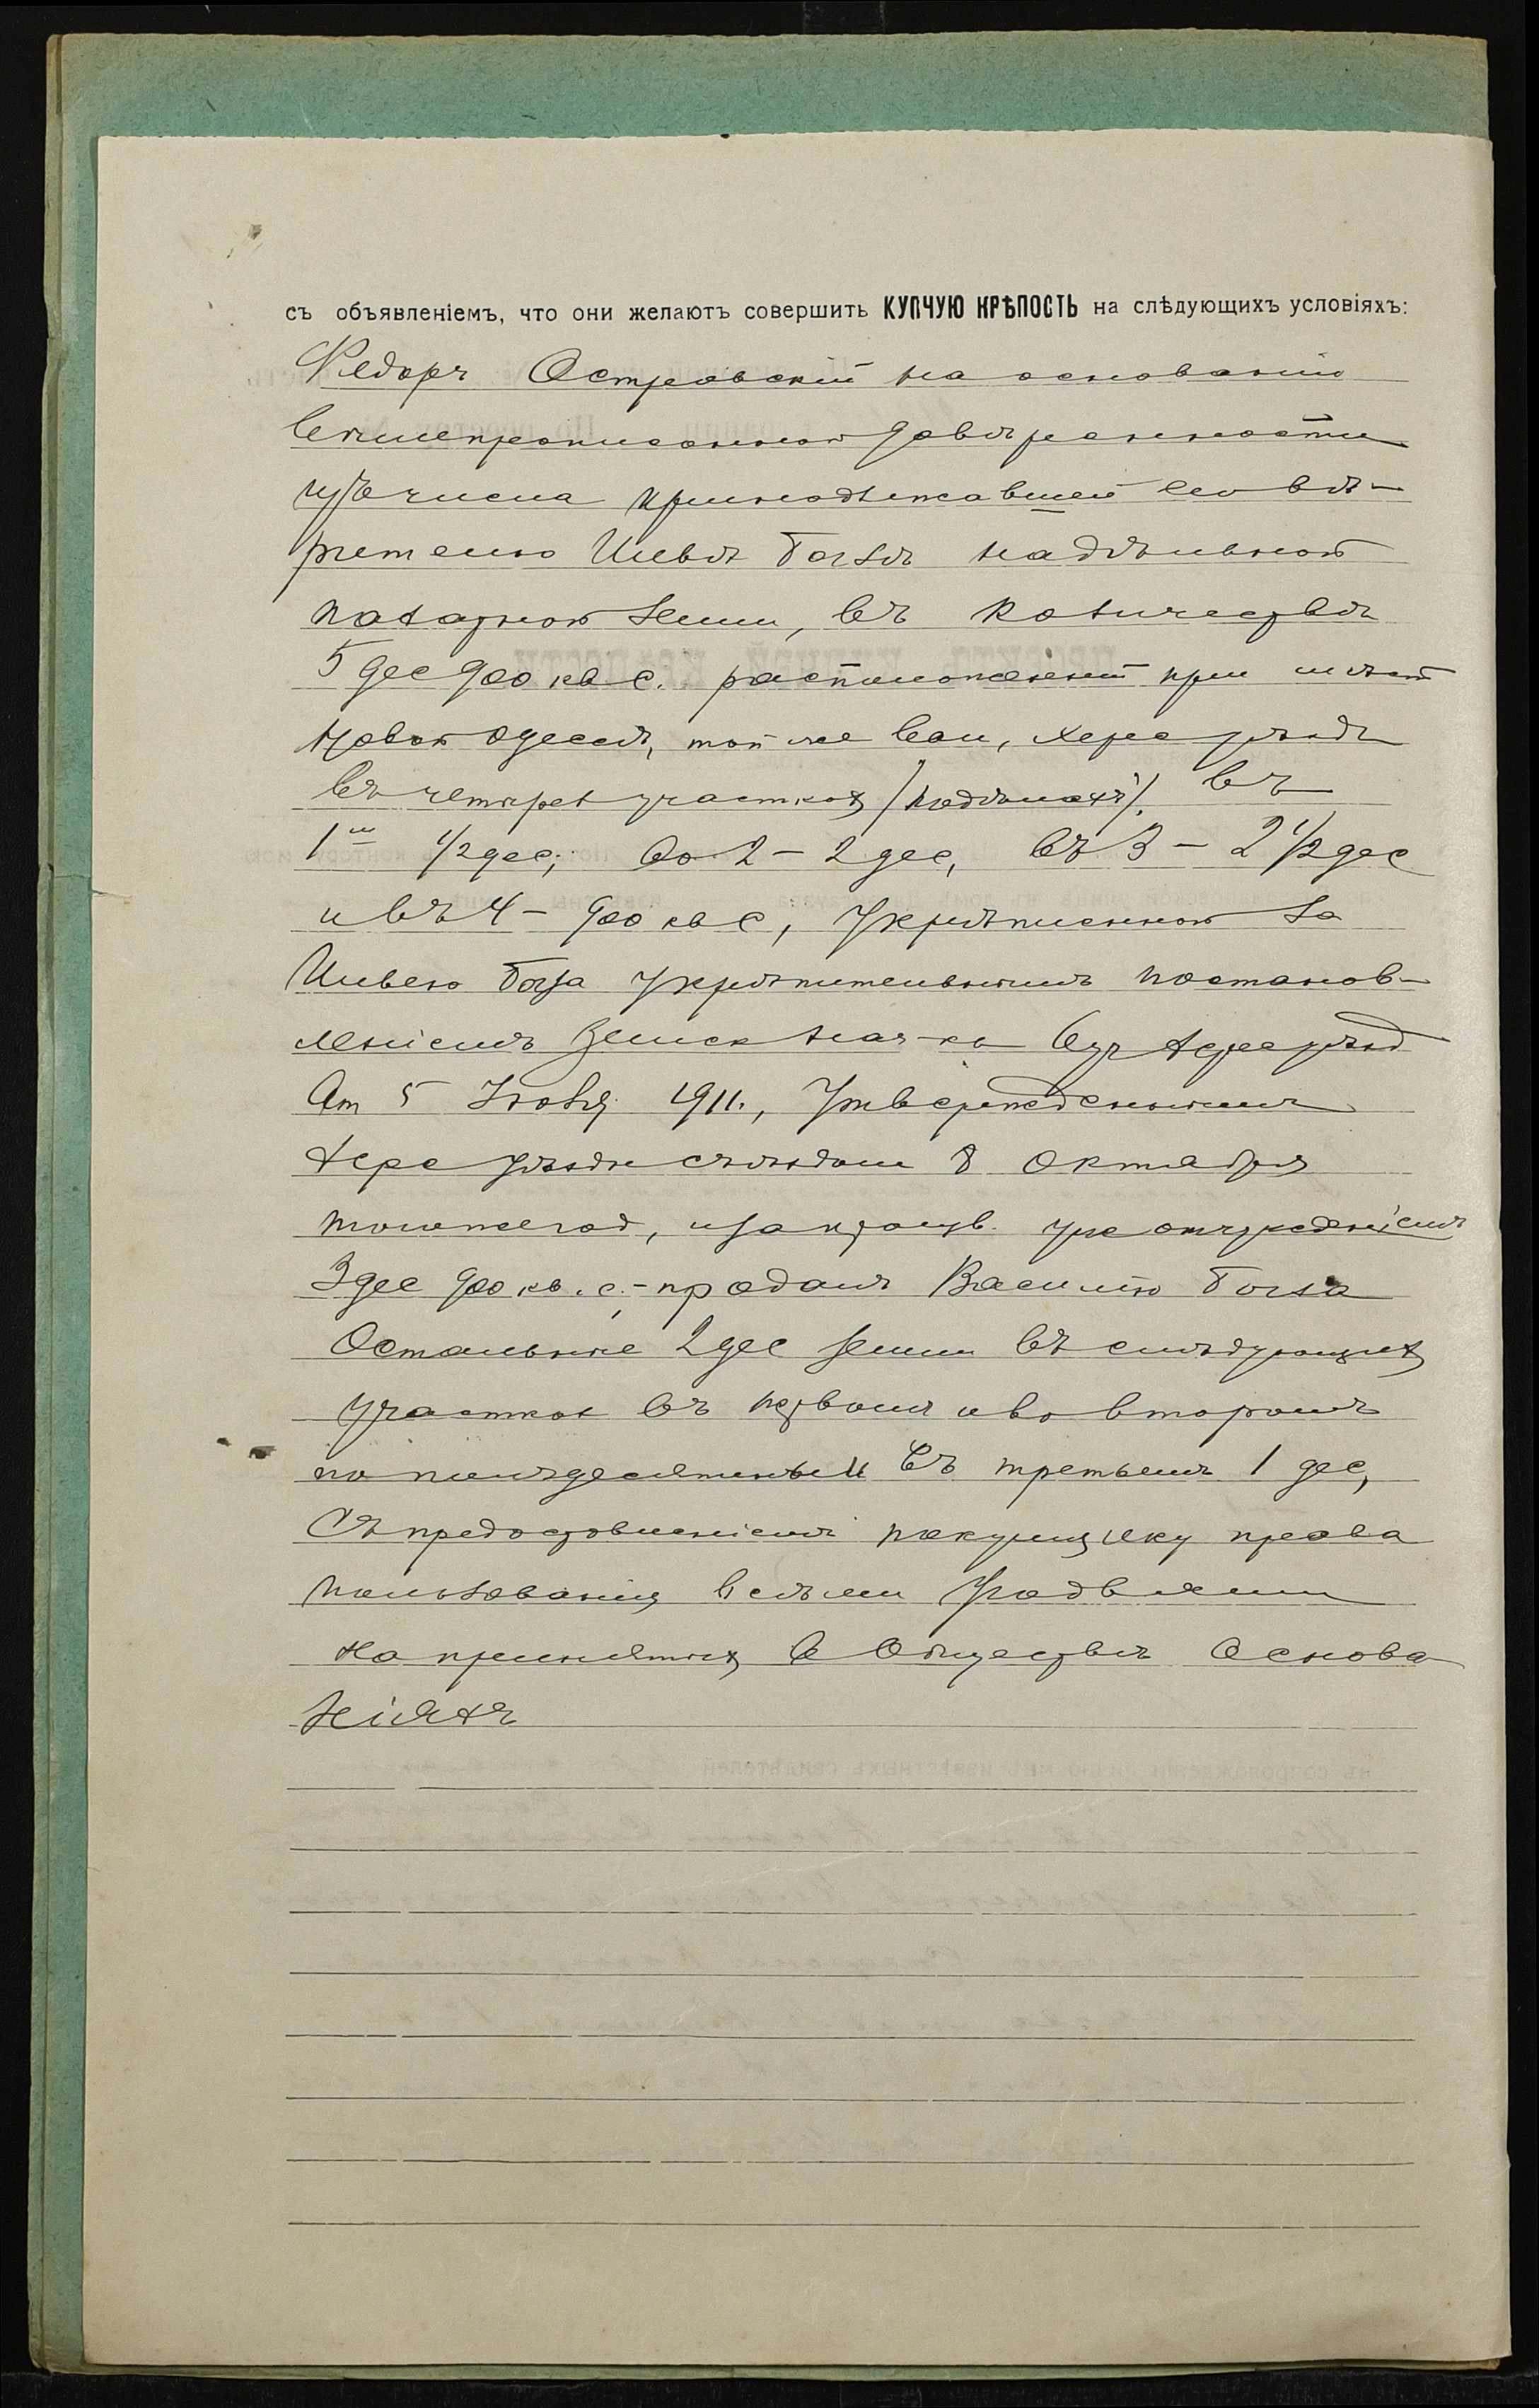 съ объявленіемъ, что они желаютъ совершить КУПЧУЮ КРѢПОСТЬ на слѣдующихъ условіяхъ:
Федоръ Островскій на основаніи
вышепрописанной довѣренности
изъ числа принадлежавшей его вѣ-
рителю Ильѣ Богзѣ надѣльной
пахатной земли, въ количествѣ
5 дес 900 кв с. расположенной при мѣст
Новой Одессѣ, той же вол, Херс уѣзда
въ четырех участках /наделахъ/. въ
1м 1/2 дес; во 2 – 2 дес, въ 3 – 2 1/2 дес
и въ 4 – 900 кв с, укрѣпленной за
Ильею Богза укрѣпительнымъ постанов-
леніемъ Земск Нач-ка уч Херс уѣзд
От 5 1911., Утвержденнымъ
Херс уѣздн съѣздом 8 Октября
того же год, и за уже отчужденіемъ
3 дес 900 кв. с. – продалъ Василію Богза
Остальные 2 дес земли въ слѣдующих
участках въ первом и во второмъ
по полъдесятины и въ третьемъ 1 дес,
Съ предоставленіемъ покупщику права
пользованія всѣми угодьями
на принятых в Обществѣ Основа
ніяхъ